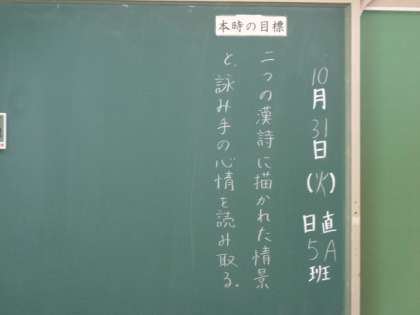 10月31日(火)
日直
5A班
本時の目標
二つの漢詩に描かれた情景
と、詠み手の心情を読み取る。